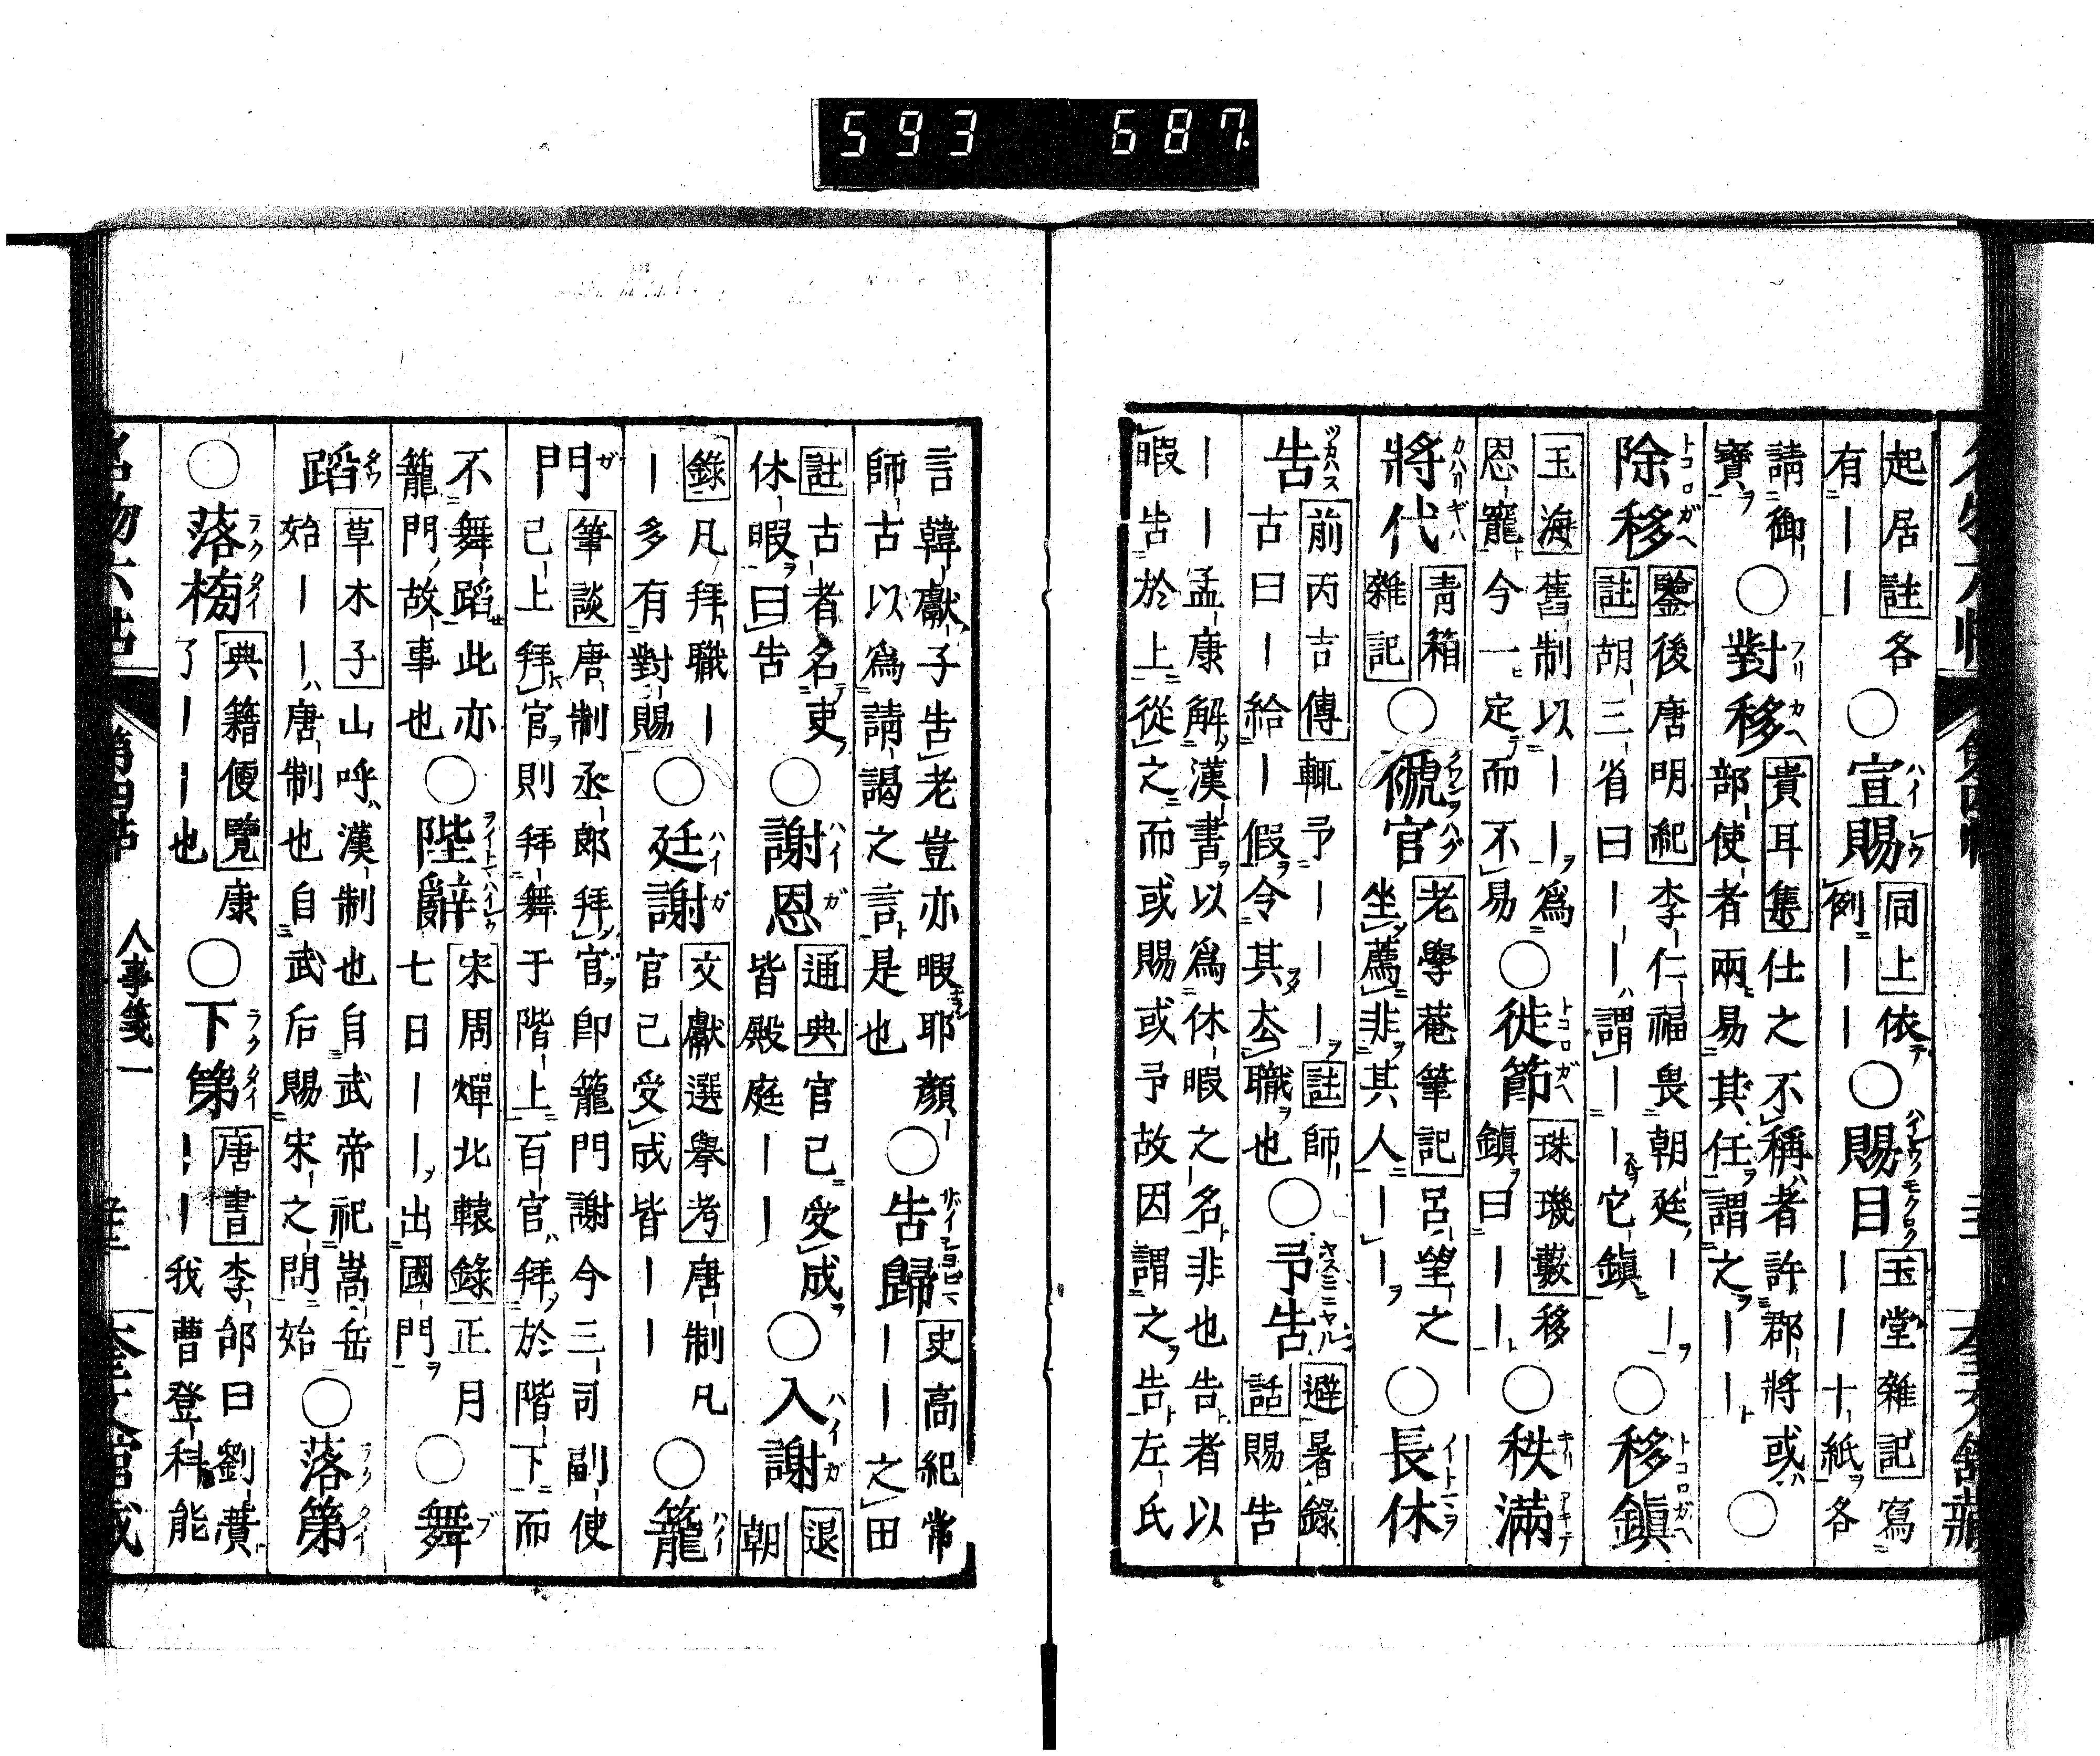 593 687
起居註各
有｜｜
○宣賜
同上依
例｜｜
○賜目
玉堂雜記寫
｜｜十紙各
請御
寶
○對移
貴耳集仕之不稱者許郡將或
部使者兩易其任謂之｜｜
○
除移
鑒後唐明紀李仁福畏朝廷｜｜
註胡三省曰｜｜謂｜｜它鎮
○移鎮
玉海舊制以｜｜爲
恩寵今一定而不易
○徙節
珠璣藪移
鎮曰｜｜
○秩滿
將代
青箱
雜記
○褫官
老學菴筆記呂望之
坐薦非其人｜｜
○長休
告
前丙吉傳輒予｜｜｜註師
古曰｜給｜假令其去職也
○予告
避暑錄
話賜告
｜｜孟康解漢書以爲休暇之名非也告者以
暇告於上從之而或賜或予故因謂之告左氏
言韓獻子告老豈亦暇耶顔｜
師古以爲請謁之言是也
○告歸
史高紀常
｜｜之田
註古者名吏
休暇曰告
○謝恩
通典官已受成
皆殿庭｜｜
○入謝
退
朝
錄凡拜職｜
｜多有對賜
○廷謝
文獻選擧考唐制凡
官已受成皆｜｜
○籠
門
筆談唐制丞郎拜官卽籠門謝今三司副使
已上拜官則拜舞于階上百官拜於階下而
不舞蹈此亦
籠門故事也
○陛辭
宋周煇北轅錄正月
七日｜｜出國門
○舞
蹈
草木子山呼漢制也自武帝祀嵩岳
始｜｜唐制也自武后賜宋之問始
○落第
○落
典籍便覽康
了｜｜也
○下第
唐書李郃曰劉蕡
｜｜我曹登科能
名物六帖 第四帖 人事箋一